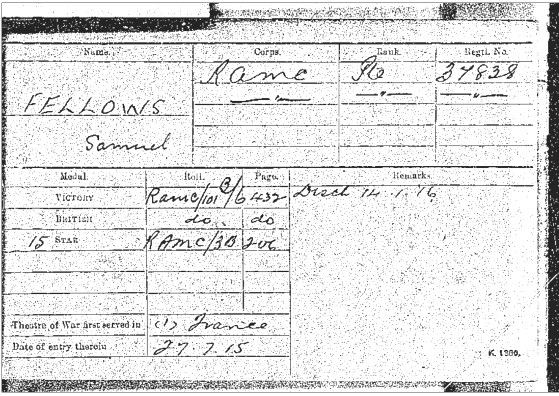 Name. Corps. Rank. Regtl. No.
RAMC Pte 37838
FELLOWS — " — — " — — " —
Samuel
Medal. Roll. Page. Remarks.
VICTORY RAMC/101 B/6432 Disch 14.1.16
BRITISH do do
15 STAR RAMC/3B 206
Theatre of War first served in (1) France
Date of entry therein 27.7.15
K. 1380.